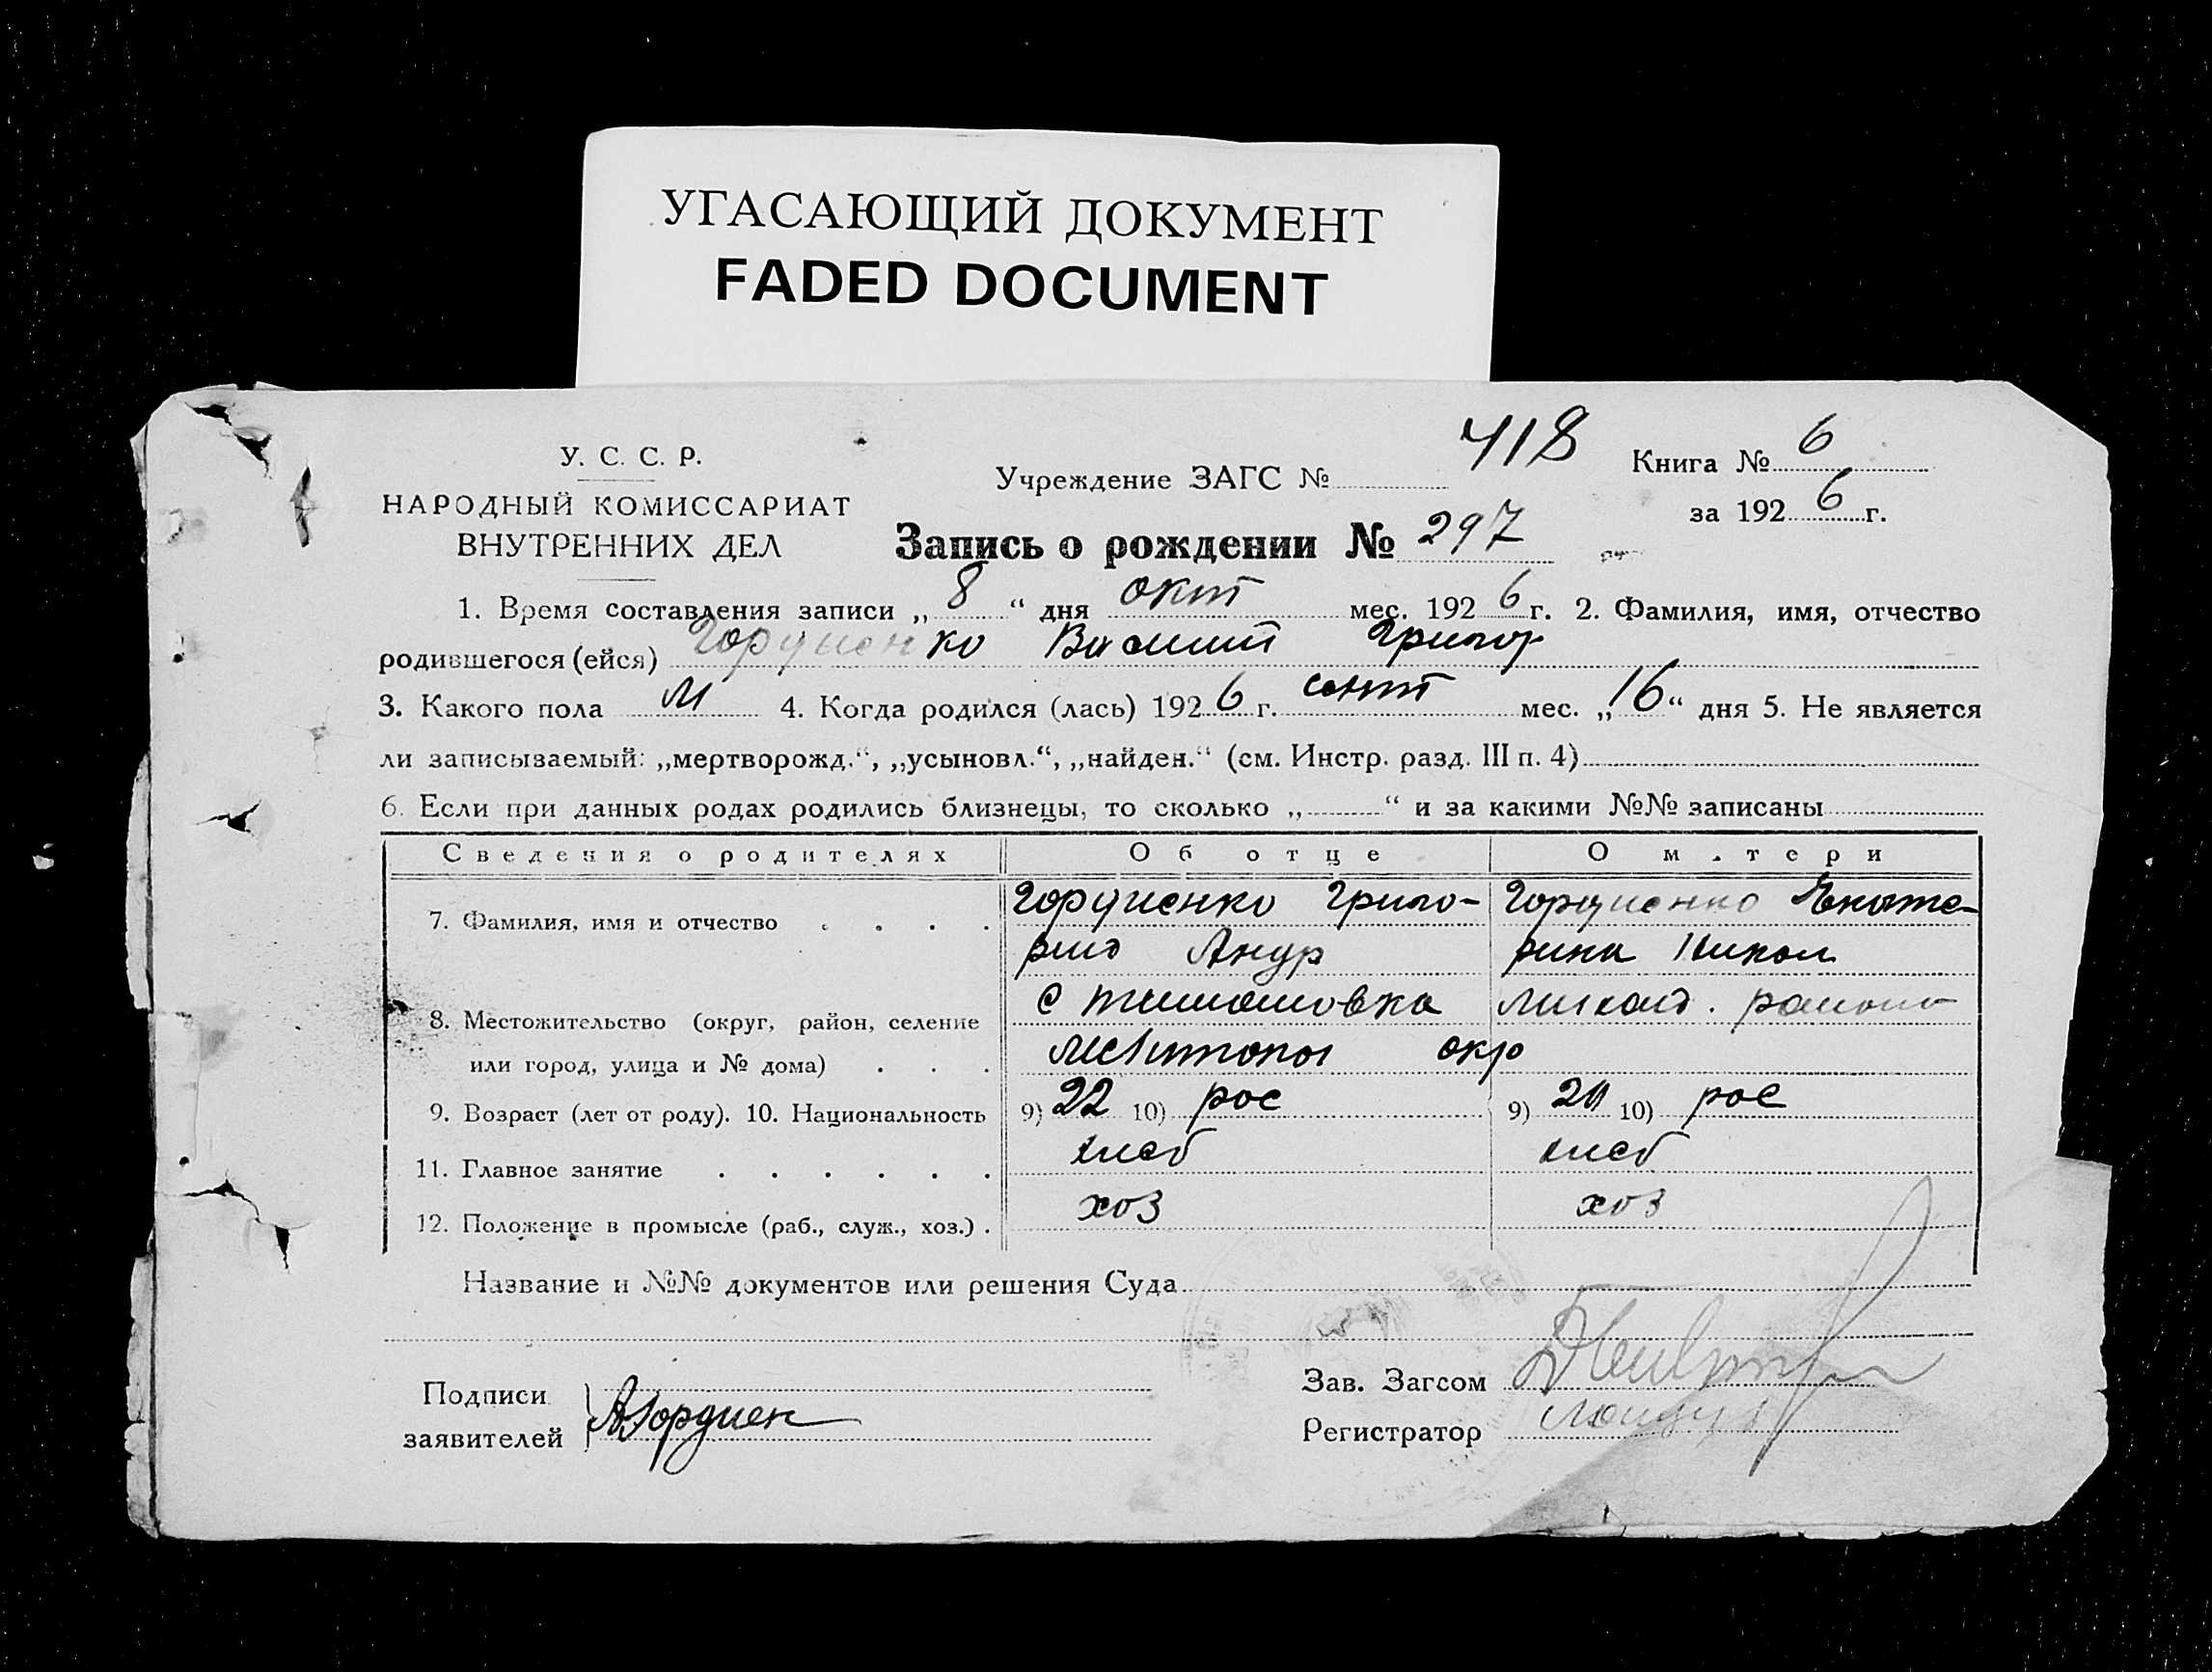 УГАСАЮЩИЙ ДОКУМЕНТ
FADED DOCUMENT
У. С. С. Р.
НАРОДНЫЙ КОМИССАРИАТ
ВНУТРЕННИХ ДЕЛ
Учреждение ЗАГС № 418
Книга № 6
за 1926 г.
Запись о рождении № 297
1. Время составления записи „8“ дня окт мес. 1926 г. 2. Фамилия, имя, отчество
родившегося (ейся) Гордиенко Василий Григор
3. Какого пола М 4. Когда родился (лась) 1926 г. сент мес. „16“ дня 5. Не является
ли записываемый: „мертворожд.“, „усыновл.“, „найден.“ (см. Инстр. разд. III п. 4)
6. Если при данных родах родились близнецы, то сколько „ “ и за какими №№ записаны
Сведения о родителях Об отце О м.тери
7. Фамилия, имя и отчество Гордиенко Григо- Гордиенко Екате-
рий Андр рина Никол
8. Местожительство (округ, район, селение с Тимошовка района
или город, улица и № дома) Мелитопол окр
9. Возраст (лет от роду). 10. Национальность 9) 22 10) рос 9) 20 10) рос
11. Главное занятие хлеб хлеб
12. Положение в промысле (раб., служ., хоз.) хоз хоз
Название и №№ документов или решения Суда
Подписи
заявителей
Гордиен
Зав. Загсом
Регистратор